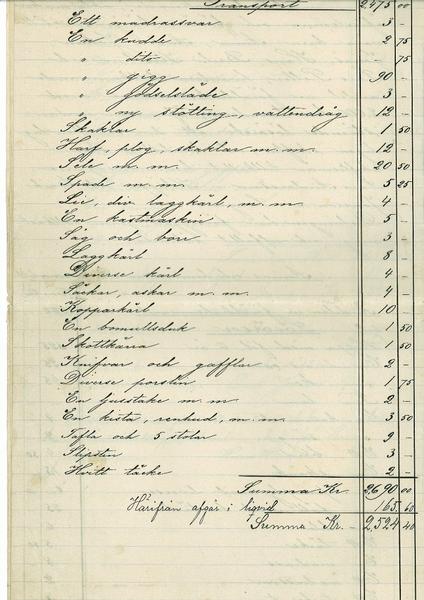 Transport 2,475 00
Ett madrassvar 3 -
En kudde 2 75
" dito - 75
" gigg 90 -
" gödselsläde 3 -
" ny stötting, vattendrög 12 -
Skaklar 1 50
Harf, plog, skaklar m. m. 12 -
Sele m. m. 20 50
Spade m. m. 5 25
Lie, div. laggkärl, m. m. 4 -
En kastmaskin 5 -
Såg och borr 3 -
Laggkärl 8 -
Diverse kärl 4 -
Säckar, askar m. m. 4 -
Kopparkärl 10 -
En bomullsduk 1 50
Skottkärra 1 50
Knifvar och gafflar 2 -
Diverse porslin 1 75
En ljusstake m. m. 2 -
En kista, renhud, m. m. 3 50
Tafla och 5 stolar 2 -
Slipsten 3 -
Hvitt täcke 2 -
Summa Kr. 2,690 00
Härifrån afgår i liqvid 165 60
Summa Kr. 2,524 40